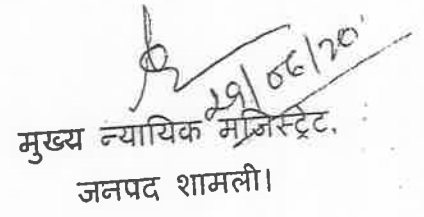 29/06/20
मुख्य न्यायिक मजिस्ट्रेट,
जनपद शामली।